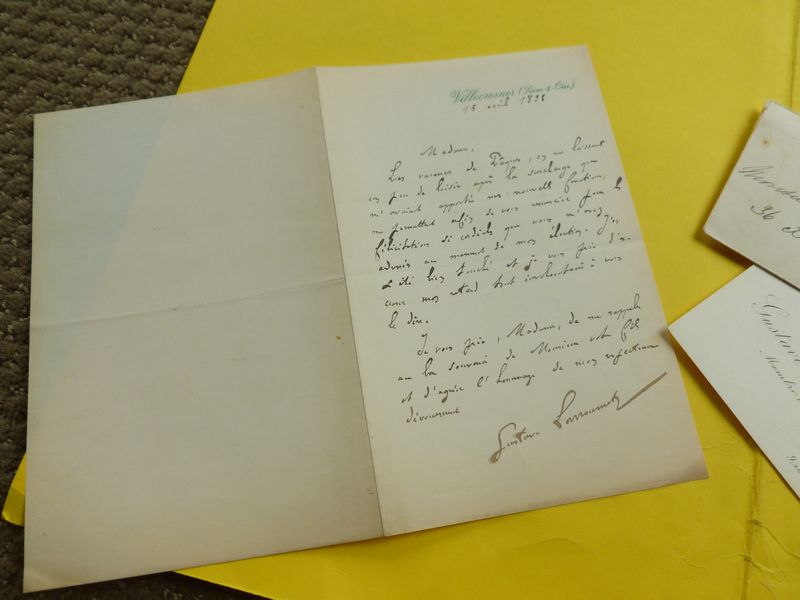 Villecresnes (Seine & Oise)
15 avril 1898
Madame,
Les vacances de Pâques, en me laissant
un peu de loisir après la surcharge que
m'avaient apportée mes nouvelles fonctions,
me permettent enfin de vous remercier pour les
félicitations si cordiales que vous m'avez
adressées au moment de mon élection. J'en
ai été bien touché et je vous prie d'ex-
cuser mon retard tout involontaire à vous
le dire.
Je vous prie, Madame, de me rappeler
au bon souvenir de Monsieur votre fils
et d'agréer l'hommage de mon respectueux
dévouement
Gustave Larroumet
36
Gustave